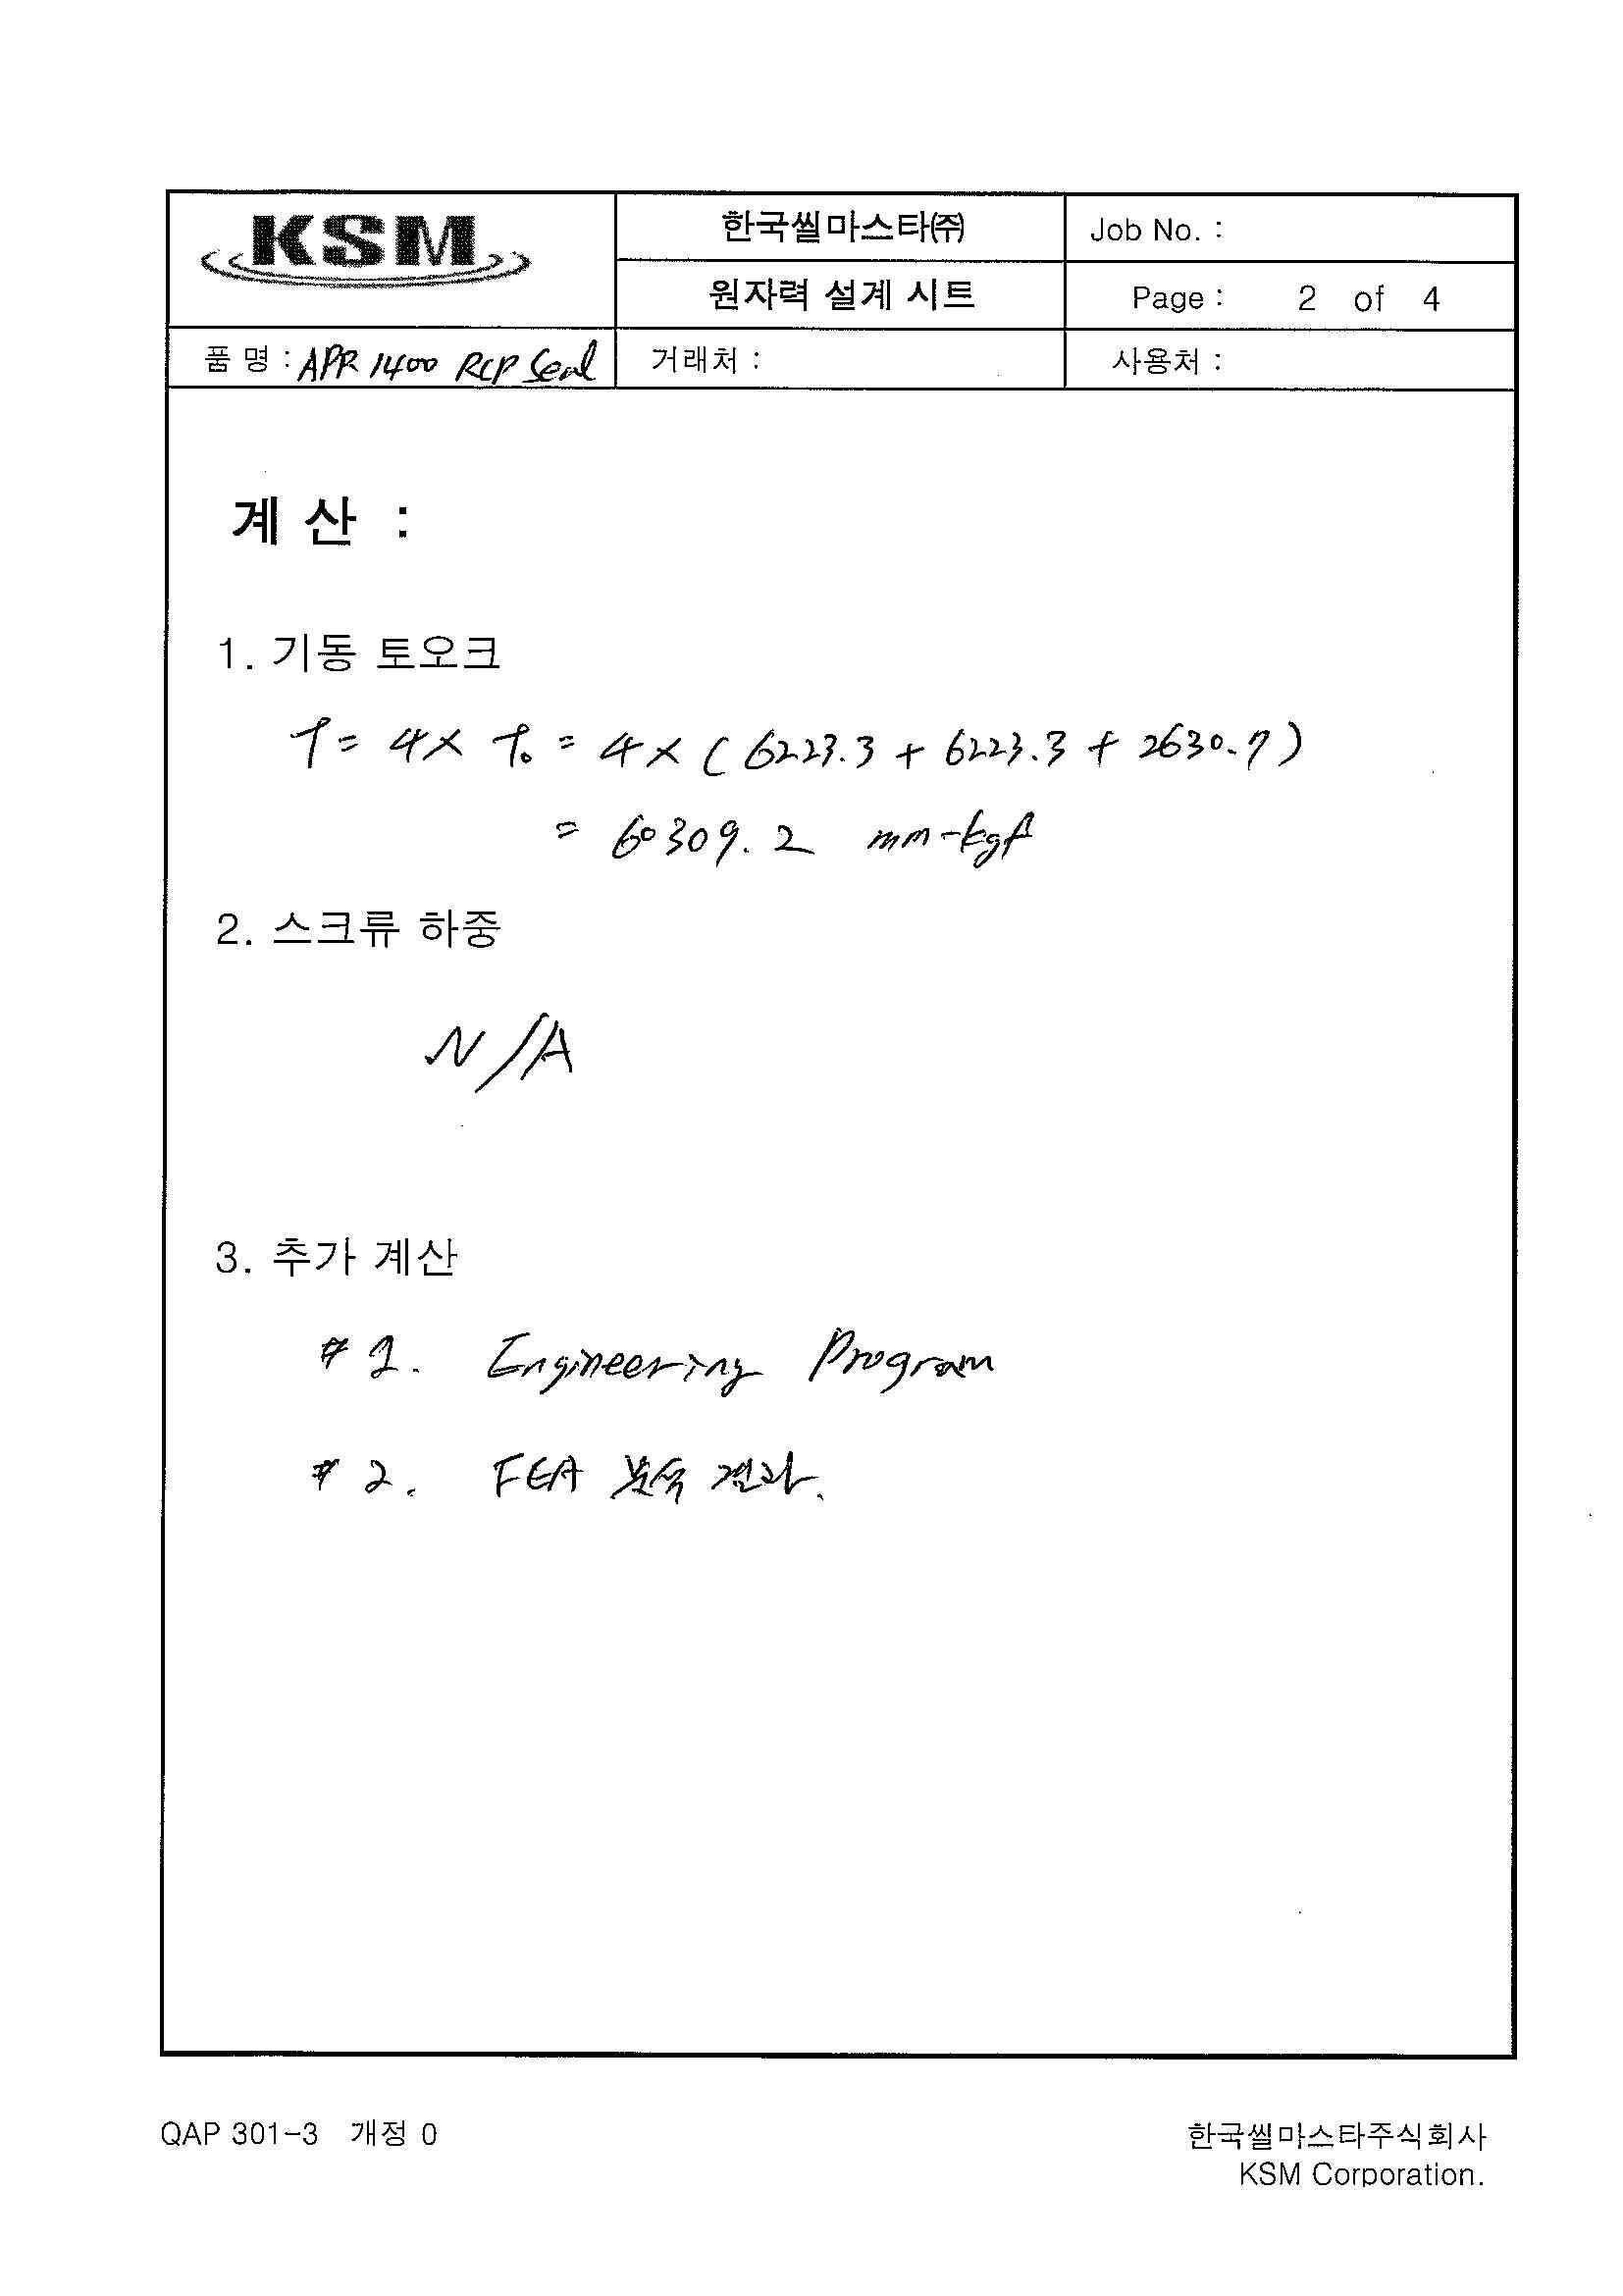 KSM
한국씰마스타㈜
Job No. :
원자력 설계 시트
Page : 2 of 4
품 명 : APR 1400 RCP Seal
거래처 :
사용처 :
계 산 :
1. 기동 토오크
T = 4 × T₀ = 4 × ( 6223.3 + 6223.3 + 2630.7 )
= 60309.2 mm-kgf
2. 스크류 하중
N/A
3. 추가 계산
# 1. Engineering Program
# 2. FEA 분석 결과.
QAP 301-3 개정 0
한국씰마스타주식회사
KSM Corporation.